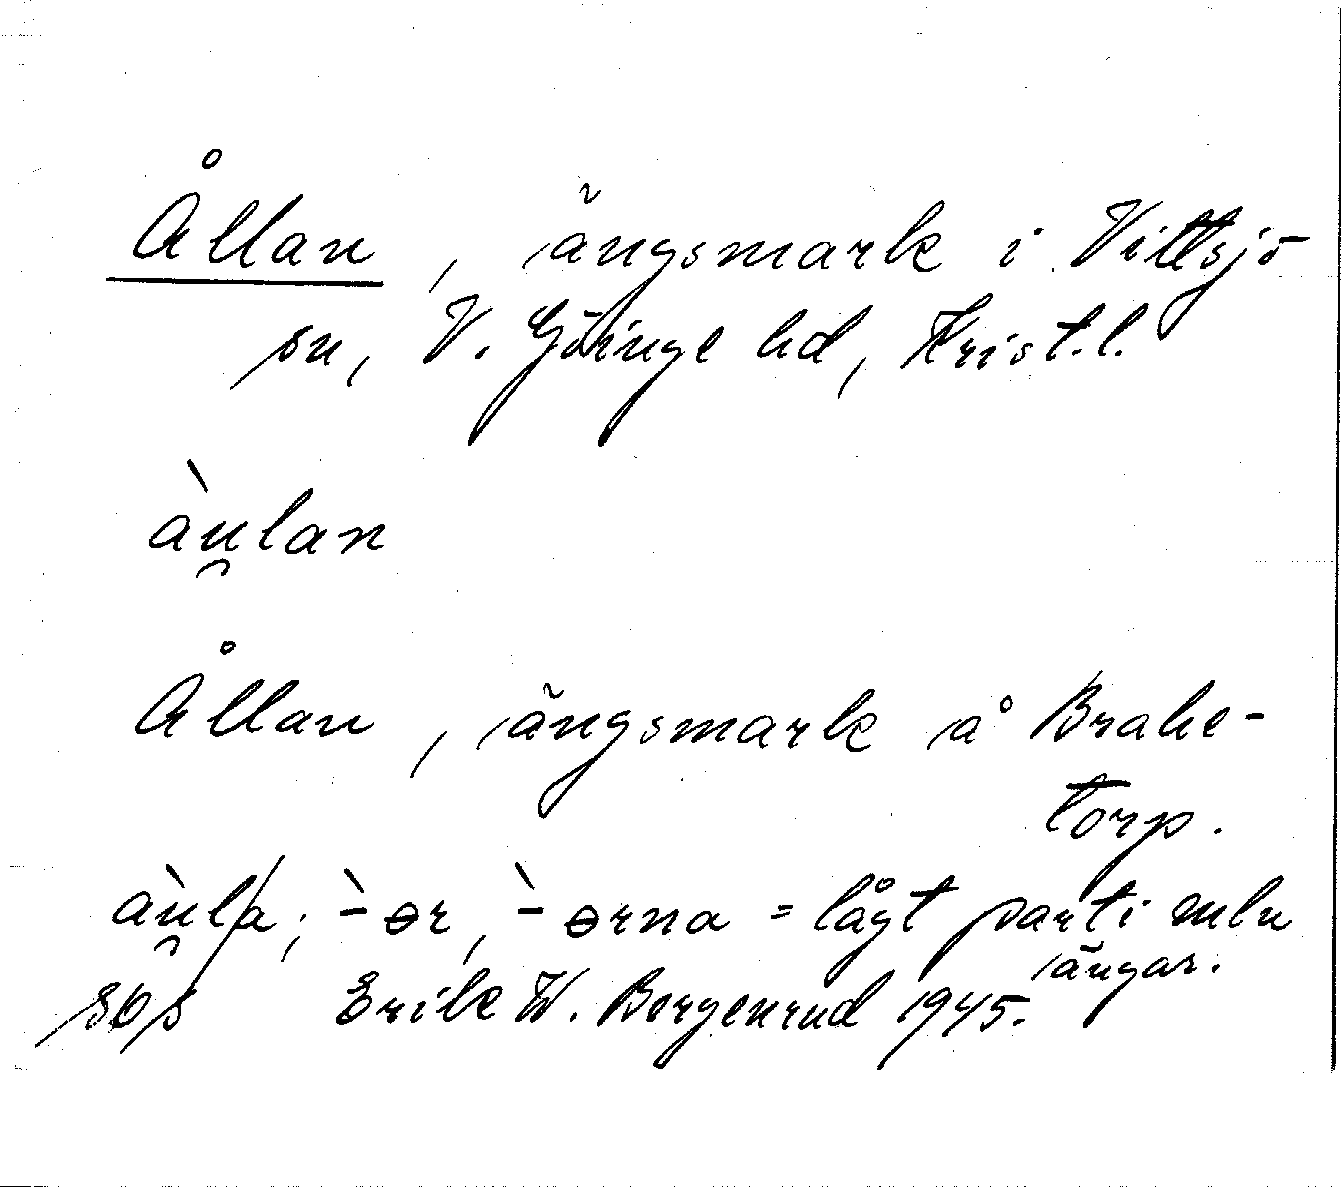 Ållan, ängsmark i Vittsjö
sn, V. Göinge hd, Krist.l.
àu̯lan
Ållan, ängsmark å Brahe-
torp.
àu̯la; -̀ ɵr, -̀ ɵrna = lågt parti mln
ängar.
Erik W. Borgenrud 1945.